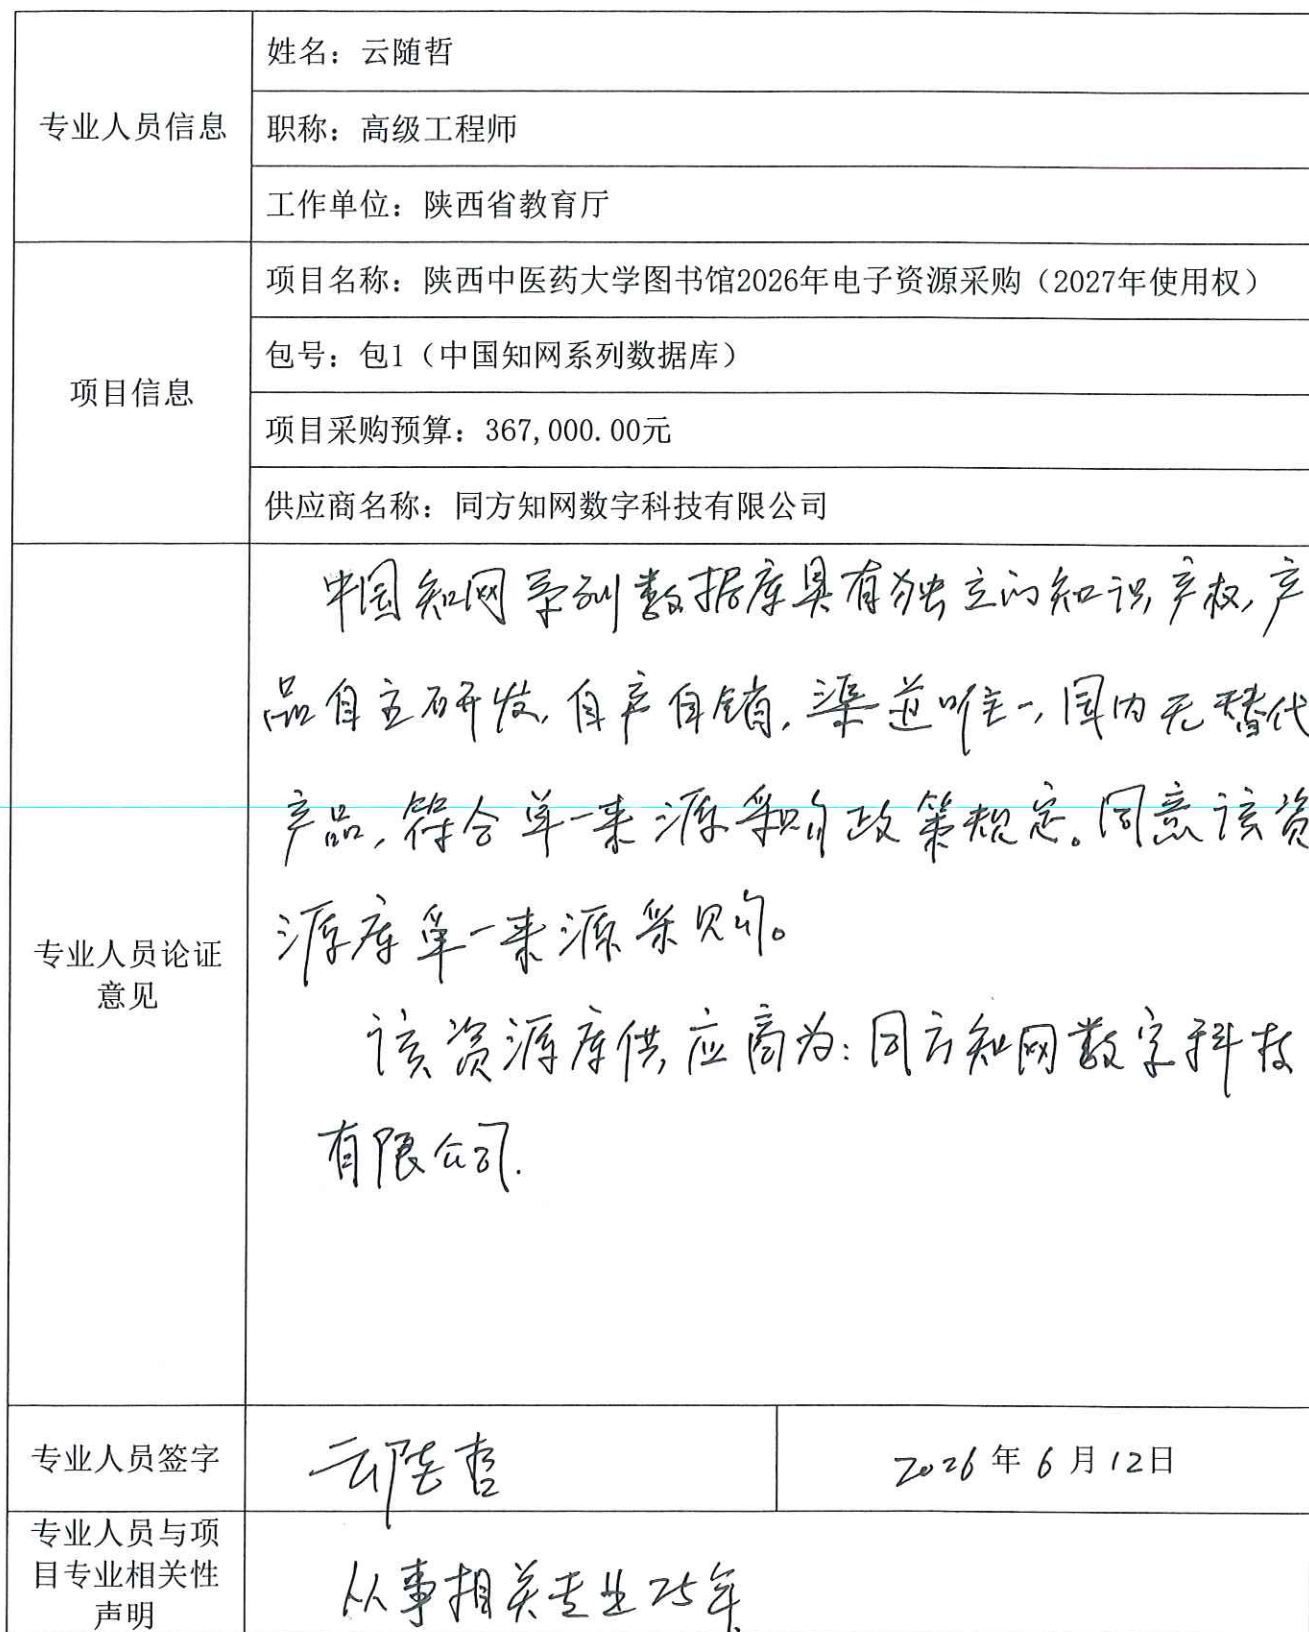 专业人员信息
姓名：云随哲
职称：高级工程师
工作单位：陕西省教育厅
项目信息
项目名称：陕西中医药大学图书馆2026年电子资源采购（2027年使用权）
包号：包1（中国知网系列数据库）
项目采购预算：367,000.00元
供应商名称：同方知网数字科技有限公司
专业人员论证
意见
中国知网系列数据库具有独立的知识产权，产
品自主研发，自产自销，渠道唯一，国内无替代
产品，符合单一来源采购政策规定。同意该资
源库单一来源采购。
该资源库供应商为：同方知网数字科技
有限公司.
专业人员签字
云随哲
2026年6月12日
专业人员与项
目专业相关性
声明
从事相关专业25年